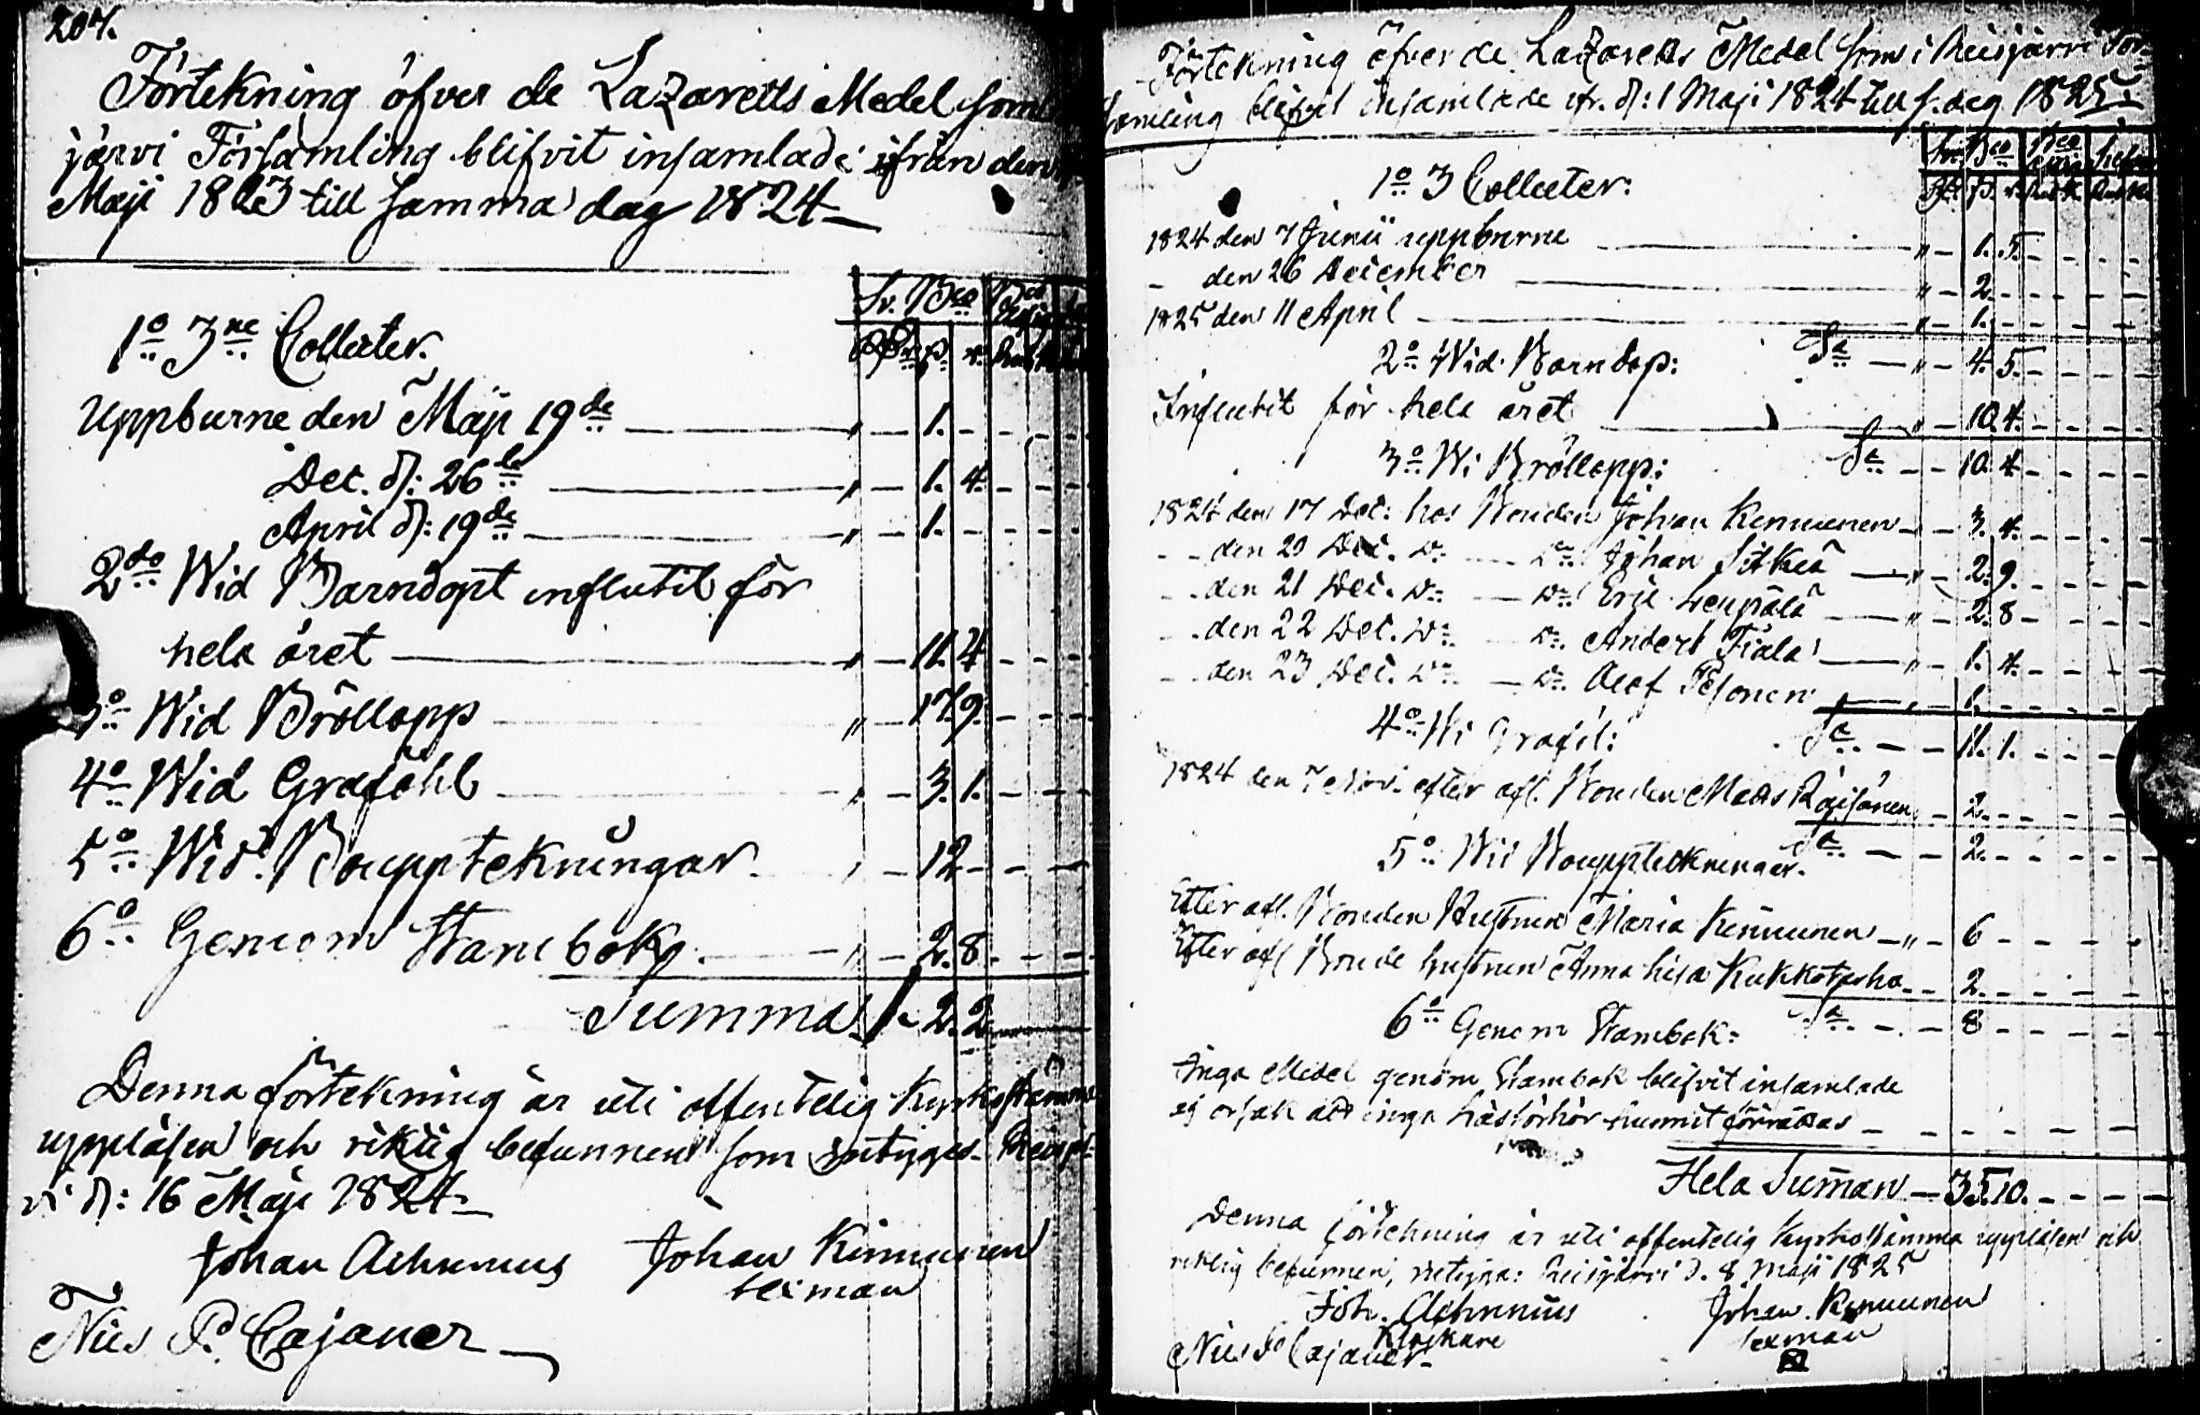 207.
Förtekning öfver de Lazaretts Medel som
järvi Församling blifvit insamlade ifrån den
Maji 1823 till samma dag 1824
Sv. Bco
1o 3ne Collecter.
Uppburne den Maji 19de — „ — 1. - -
Dec. d: 26te — „ — 1. 4. - -
April d: 19de — „ — 1. - -
2do Wid Barndopt influtit för
hela året — „ — 11. 4 - -
3o Wid Bröllopp — „ — 17. 9. - -
4o Wid Grafõhl — „ — 3. 1. - -
5o Wid Bouppteknüngar — 12 - -
6o Genom Stambok — „ — 2. 8. - -
Summa 1 - 2. 2.
Denna förtekning är uti offentelig Kyrkostämma
uppläsen och riktig befunnen som intygas Reisjär-
vi d: 16 Maji 1824
Johan Achrenius Johan Kinnunen
Nils P. Cajaner sexman
Förtekning öfver de Lazaretts Medel som i Reisjärvi För-
samling blifvit insamlade ifr. d: 1 Maji 1824 till s. dag 1825
1o 3 Collecter:
1824 den 7 Junii uppburne — „ — 1. 5. - -
- den 26 December — „ — 2. - -
1825 den 11 April — „ — 1. - -
2o Wid Barndop: Sa — „ — 4. 5. - -
Influtit för hela året — „ — 10. 4. - -
3o Wi Bröllopp: Sa — 10. 4. - -
1824 den 17 Dec: hos Bonden Johan Kinnunen — 3. 4. - -
- - den 20 Dec. Do — Do Johan Sitkiä — „ — 2. 9. - -
- - den 21 Dec. Do — Do Eric Leppälä — „ — 2. 8 - -
- - den 22 Dec. Do — Do Anders Tiala — „ — 1. 4. - -
- - den 23 Dec. Do — Do Olof Pesonen — „ — 1. - -
4o Wi Grafõl: Sa — 11. 1. - -
1824 den 7 Nov. efter afl. Bonden Matts Räisänen — 2. - -
5o Wid Bouppteckningar. Sa — 2. - -
Efter afl. Bonden Hustrun Maria Kinnunen — „ — 6 - -
Efter afl Bonde hustrun Anna Lisa — 2. - -
6o Genom Stambok: Sa — 8 - -
Inga Medel genom Stambok blifvit insamlade
af orsak att inga Läsförhör hunnit förrättas - -
Hela Summan — 35. 10. - -
Denna förtekning är uti offentelig Kyrkostämma uppläsen och
riktig befunnen, intygas: Reisjärvi d. 8 Maji 1825
Joh. Achrenius Johan Kinnunen
Klåckare sexman
Nils P. Cajaner